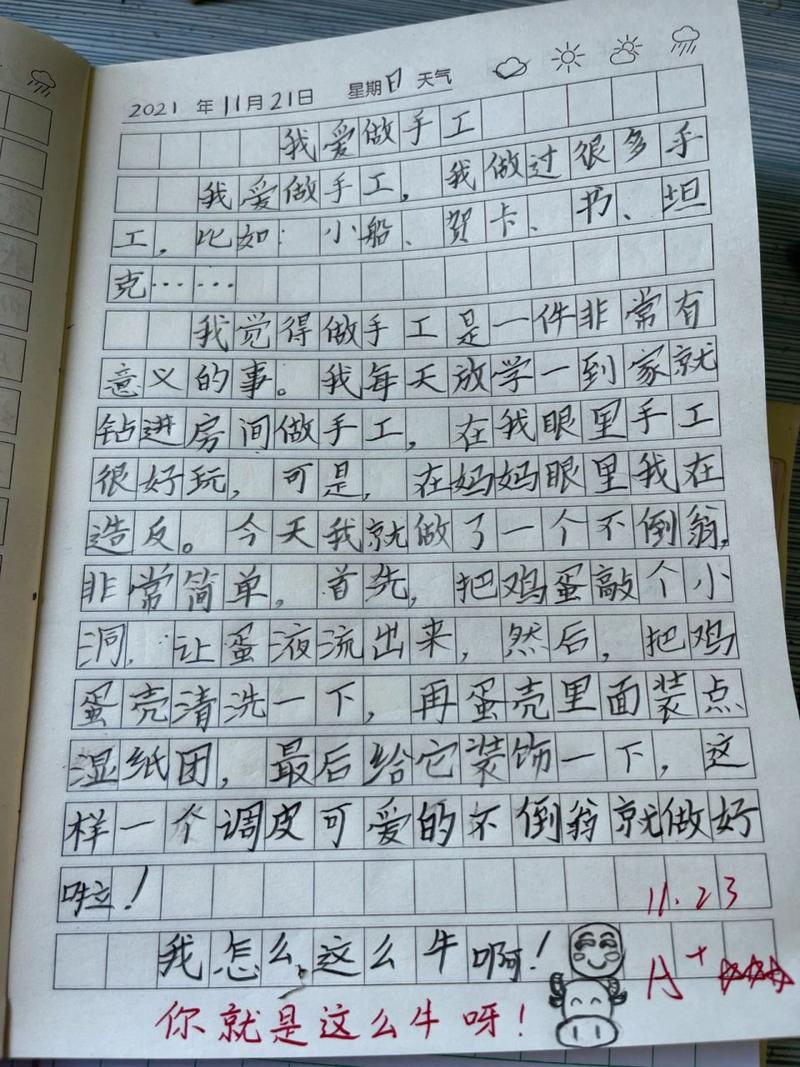 2021 年 11月 21日 星期日 天气
我爱做手工
我爱做手工，我做过很多手
工，比如：小船、贺卡、书、坦
克……
我觉得做手工是一件非常有
意义的事。我每天放学一到家就
钻进房间做手工，在我眼里手工
很好玩，可是，在妈妈眼里我在
造反。今天我就做了一个不倒翁，
非常简单。首先，把鸡蛋敲个小
洞，让蛋液流出来，然后，把鸡
蛋壳清洗一下，再蛋壳里面装点
湿纸团，最后给它装饰一下，这
样一个调皮可爱的不倒翁就做好
啦！
11.23
我怎么这么牛啊！
A+
你就是这么牛呀！